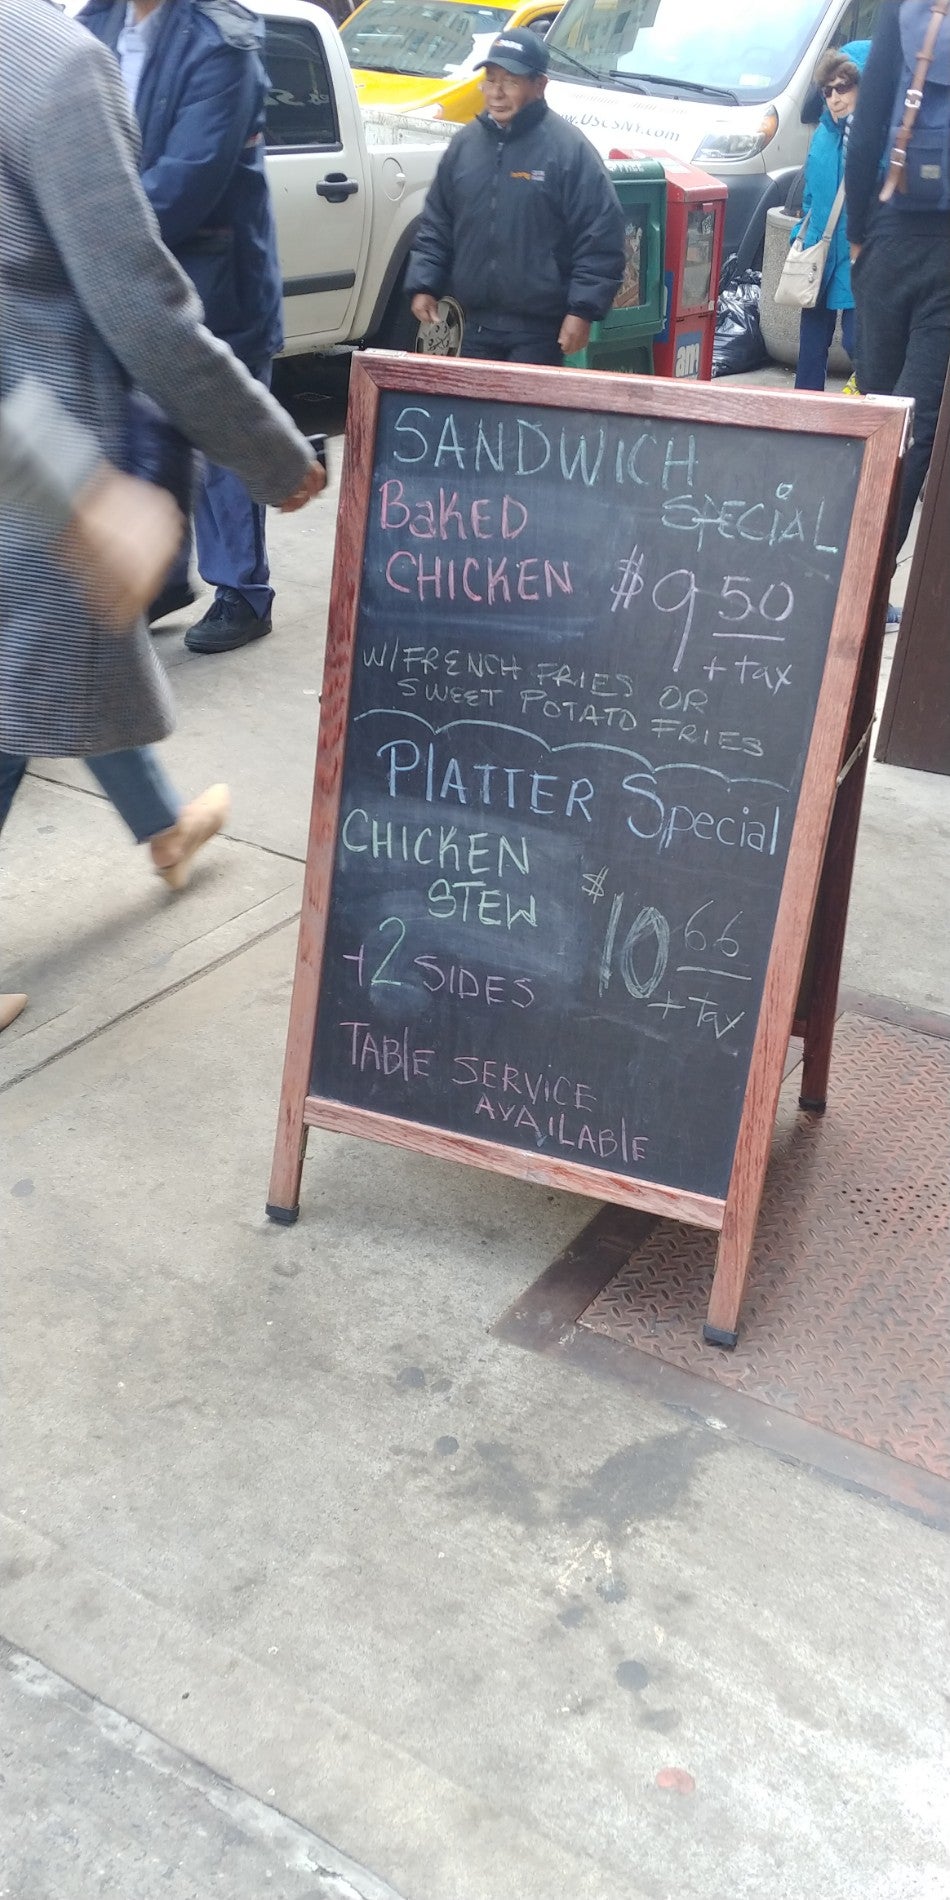 w.USCSNY.com
am
SANDWICH
SPECIAL
BaKED
CHICKEN $9 50
+ tax
W/ FRENCH FRIES OR
SWEET POTATO FRIES
PlATTER Special
CHICKEN
STEW $10 66
+2 SIDES + Tax
TABlE SERViCE
AVAILABlE